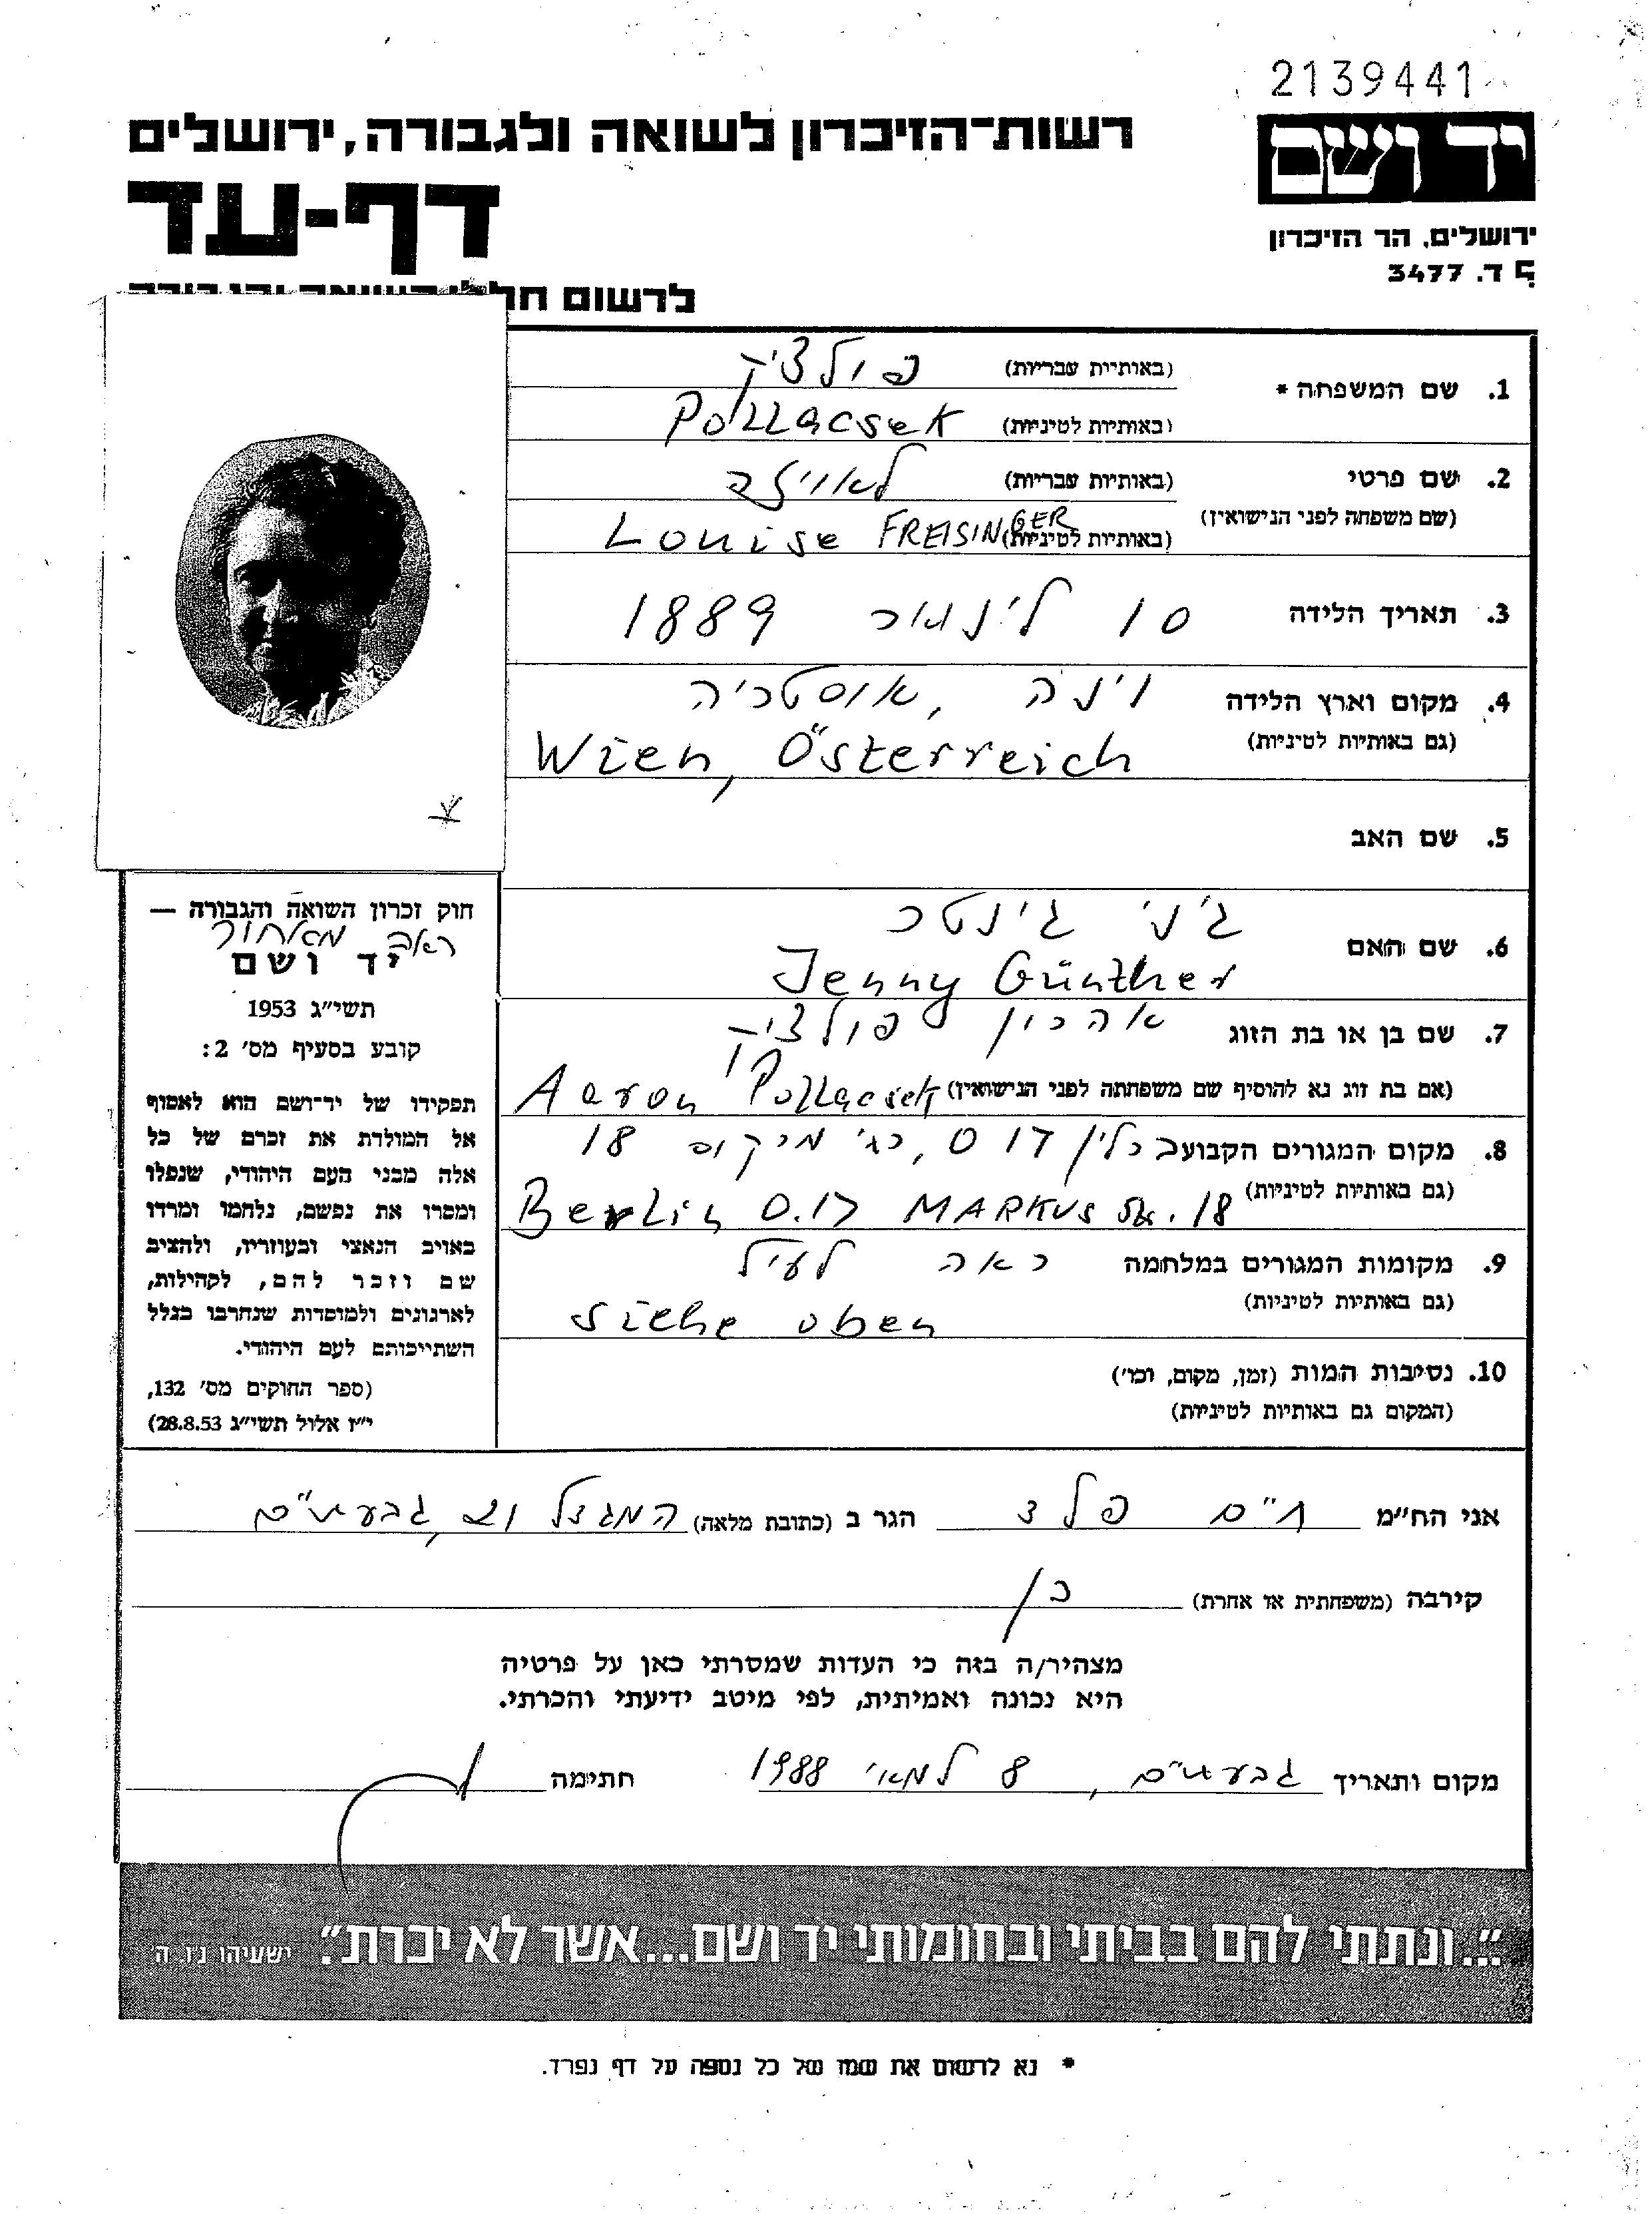 2139441
יד ושם
ירושלים, הר הזיכרון
ת.ד. 3477
רשות-הזיכרון לשואה ולגבורה, ירושלים
דף-עד
לרשום
1. שם המשפחה *
(באותיות עבריות) פולצ'ק
(באותיות לטיניות) Pollacsek
2. שם פרטי
(שם משפחה לפני הנישואין)
(באותיות עבריות) לאויזה
(באותיות לטיניות) Louise FREISINGER
3. תאריך הלידה 10 לינואר 1889
4. מקום וארץ הלידה וינה, אוסטריה
(גם באותיות לטיניות) Wien, Österreich
5. שם האב
6. שם האם ג'ני גינטר
Jenny Günther
7. שם בן או בת הזוג אהרון פולצ'ק
(אם בת זוג נא להוסיף שם משפחתה לפני הנישואין) Aaron Pollacsek
8. מקום המגורים הקבוע ברלין O 17, רח' מרקוס 18
(גם באותיות לטיניות) Berlin O.17 MARKUS Str. 18
9. מקומות המגורים במלחמה ראה לעיל
(גם באותיות לטיניות) siehe oben
10. נסיבות המות (זמן, מקום, וכו')
(המקום גם באותיות לטיניות)
חוק זכרון השואה והגבורה —
ראה מאחור
יד ושם
תשי"ג 1953
קובע בסעיף מס' 2:
תפקידו של יד-ושם הוא לאסוף
אל המולדת את זכרם של כל
אלה מבני העם היהודי, שנפלו
ומסרו את נפשם, נלחמו ומרדו
באויב הנאצי ובעוזריו, ולהציב
שם וזכר להם, לקהילות,
לארגונים ולמוסדות שנחרבו בגלל
השתייכותם לעם היהודי.
(ספר החוקים מס' 132,
י"ז אלול תשי"ג 28.8.53)
אני הח"מ חיים פלצ הגר ב (כתובת מלאה) המגדל גבעתיים
קירבה (משפחתית או אחרת) בן
מצהיר/ה בזה כי העדות שמסרתי כאן על פרטיה
היא נכונה ואמיתית, לפי מיטב ידיעתי והכרתי.
מקום ותאריך גבעתיים, 8 למאי 1988 חתימה
"...ונתתי להם בביתי ובחומותי יד ושם...אשר לא יכרת." ישעיהו נ"ו ה'
* נא לרשום את שמו של כל נספה על דף נפרד.